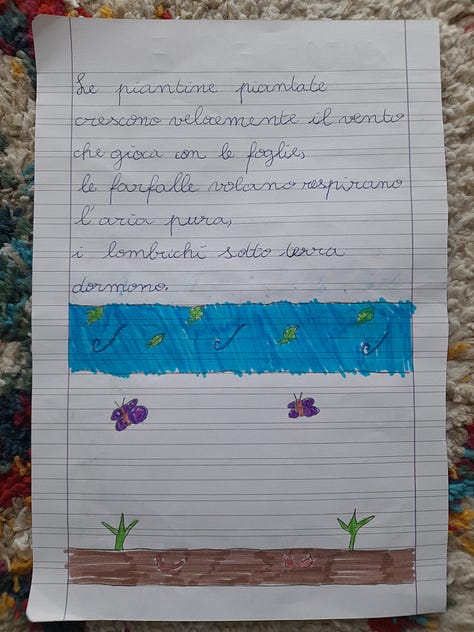 Le piantine piantate
crescono velocemente il vento
che gioca con le foglie,
le farfalle volano respirano
l'aria pura,
i lombrichi sotto terra
dormono.